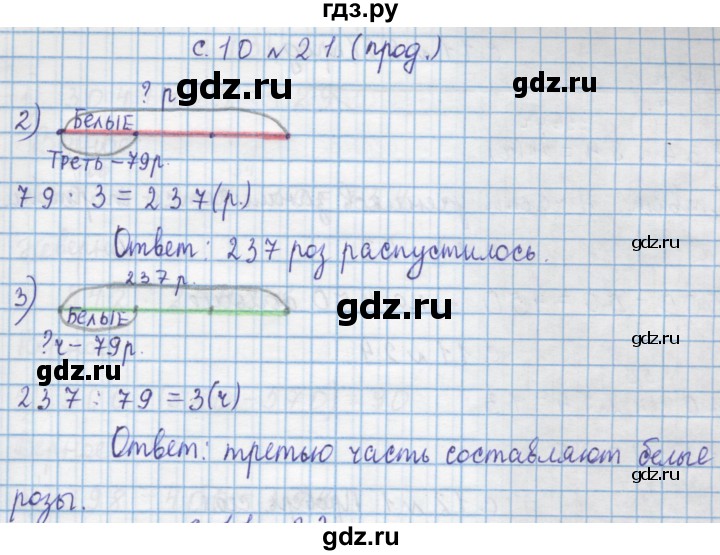 гдз.ру
с. 10 № 21. (прод.)
gdz.ru
gdz.ru
? р.
2) БЕЛЫЕ
Треть – 79р.
79 : 3 = 237 (р.)
gdz.ru
gdz.ru
Ответ: 237 роз распустилось.
gdz.ru
237 р.
3) БЕЛЫЕ
gdz.ru
?ч – 79р.
gdz.ru
gdz.ru
237 : 79 = 3 (ч)
Ответ: третью часть составляют белые
gdz.ru
розы.
gdz.ru
gdz.ru